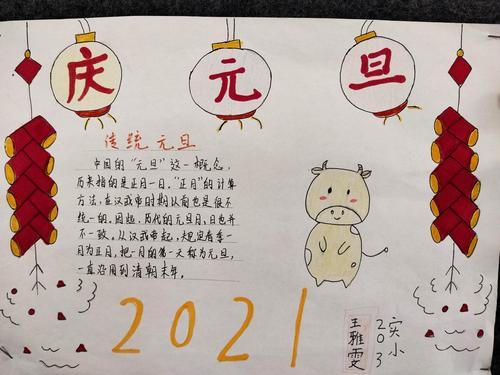 庆元旦
传统元旦
中国的“元旦”这一概念,
历来指的是正月一日。“正月”的计算
方法,在汉武帝时期以前也是很不
统一的。因此,历代的元旦月、日也并
不一致。从汉武帝起,规定春季一
月为正月,把一月的第一天称为元旦,
一直沿用到清朝末年。
2021
实小
203
王雅雯